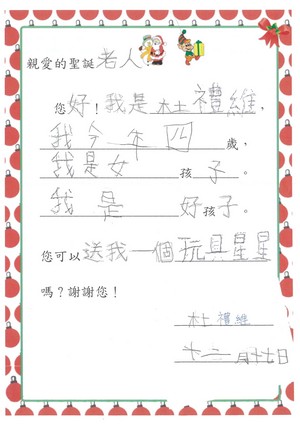 親愛的聖誕老人
您好！我是杜禮維，
我今年四歲，
我是女孩子。
我是好孩子。
您可以送我一個玩具星星
嗎？謝謝您！
杜禮維
十二月十七日